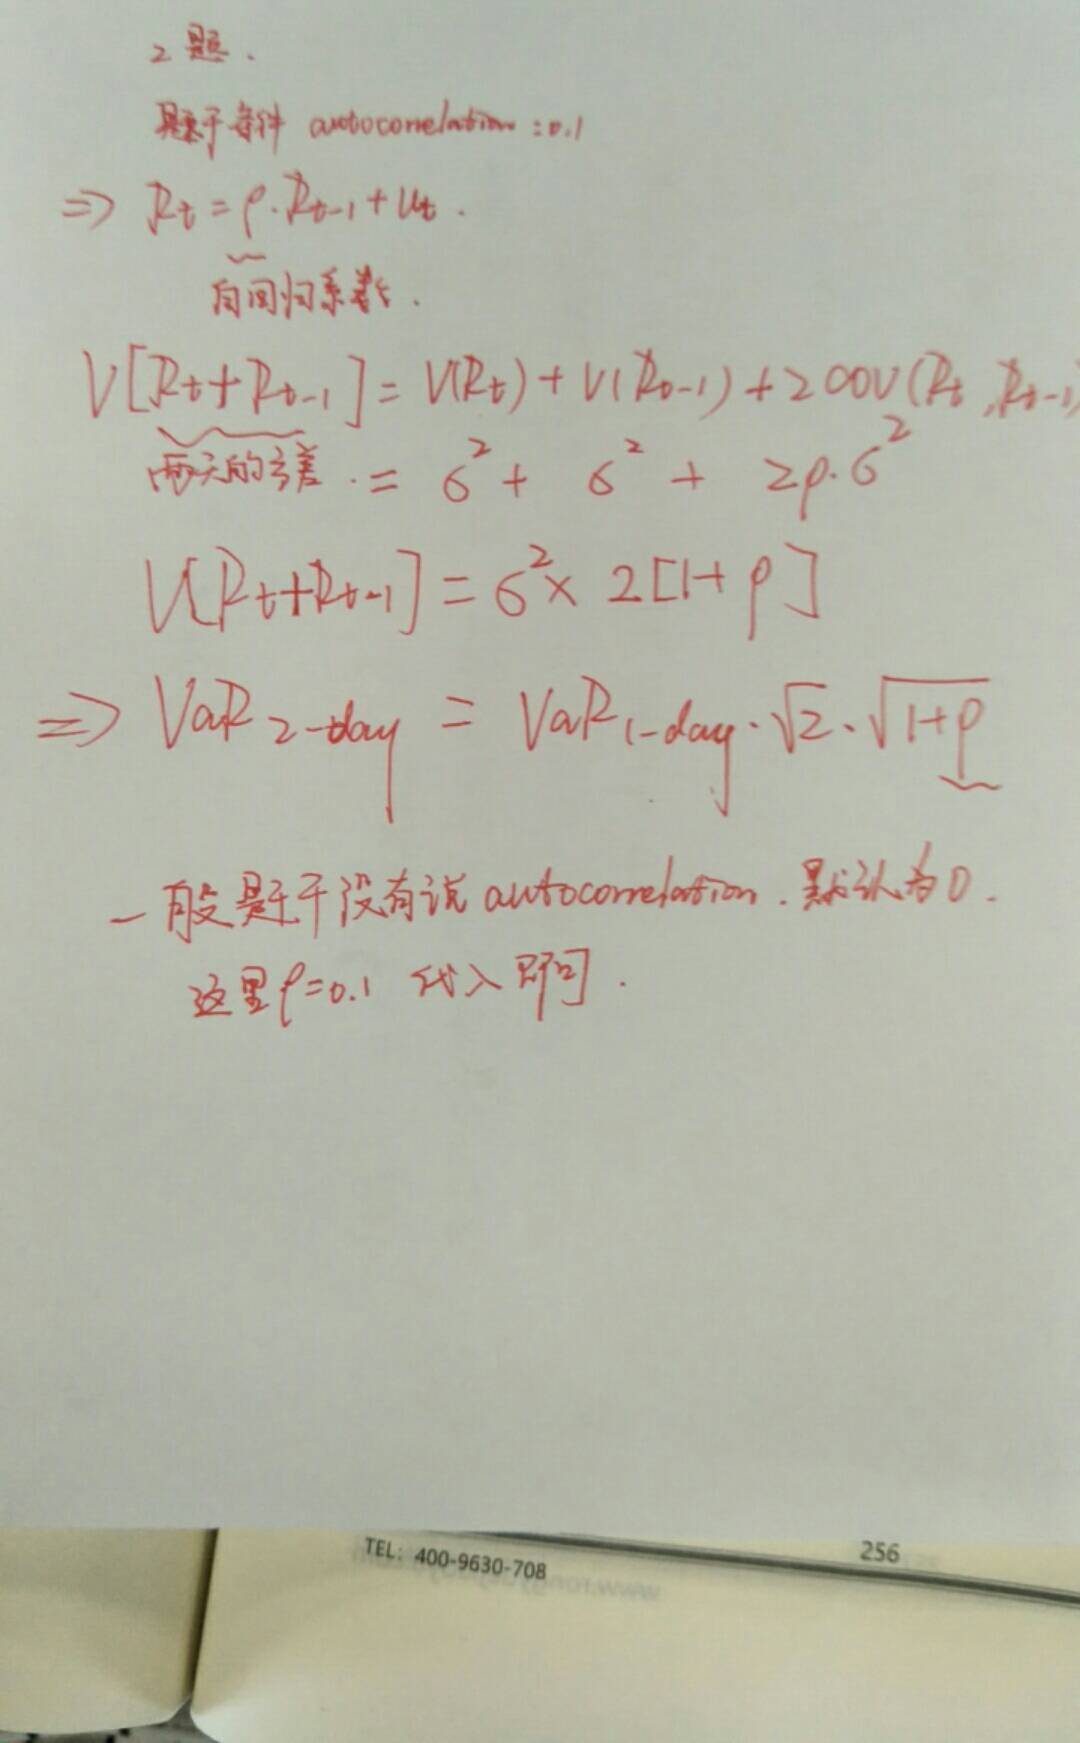 2题.
题干条件 autocorrelation:0.1
⇒ Rt = ρ·Rt-1 + Ut.
自回归系数.
V[Rt+Rt-1] = V(Rt) + V(Rt-1) + 2COV(Rt,Rt-1)
两天的方差. = σ² + σ² + 2ρ·σ²
V[Rt+Rt-1] = σ² × 2[1+ρ]
⇒ VaR 2-day = VaR 1-day·√2·√1+ρ
一般题干没有说autocorrelation.默认为0.
这里ρ=0.1 代入即可.
TEL: 400-9630-708
256